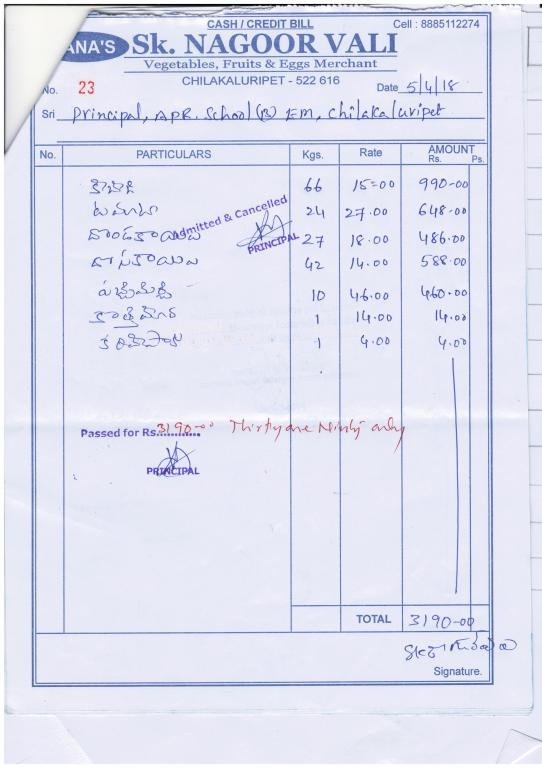 CASH / CREDIT BILL
Cell : 8885112274
ANA'S Sk. NAGOOR VALI
Vegetables, Fruits & Eggs Merchant
CHILAKALURIPET - 522 616
No. 23
Date 5/4/18
Sri Principal, APR. School (B) EM, Chilakaluripet
No. PARTICULARS Kgs. Rate AMOUNT
Rs. Ps.
క్యాబేజి 66 15=00 990-00
టమాటా 24 27.00 648-00
దొండకాయలు 27 18.00 486.00
దోసకాయలు 42 14.00 588.00
పచ్చిమిర్చి 10 46.00 460.00
కొత్తిమీర 1 14.00 14.00
కరివేపాకు 1 4.00 4.00
Admitted & Cancelled
PRINCIPAL
Passed for Rs 3190-00 Thirty one Ninty only
PRINCIPAL
TOTAL 3190-00
Signature.